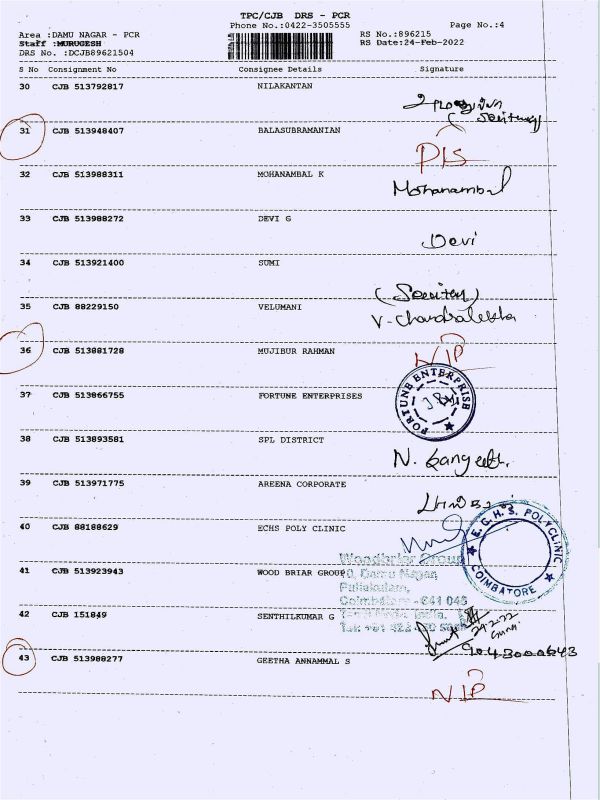 TPC/CJB DRS - PCR
Phone No.:0422-3505555
Page No.:4
Area :DAMU NAGAR - PCR
RS No.:896215
Staff :MURUGESH
RS Date:24-Feb-2022
DRS No. :DCJB89621504
S No Consignment No Consignee Details Signature
30 CJB 513792817 NILAKANTAN
31 CJB 513948407 BALASUBRAMANIAN
32 CJB 513988311 MOHANAMBAL K
Mohanambal
33 CJB 513988272 DEVI G
Devi
34 CJB 513921400 SUMI
35 CJB 88229150 VELUMANI
V. Chandralekha
36 CJB 513881728 MUJIBUR RAHMAN
NIP
37 CJB 513866755 FORTUNE ENTERPRISES
FORTUNE ENTERPRISE
38 CJB 513893581 SPL DISTRICT
39 CJB 513971775 AREENA CORPORATE
40 CJB 88188629 ECHS POLY CLINIC
E.C.H.S. POLYCLINIC
COIMBATORE
Woodbriar Group
41 CJB 513923943 WOOD BRIAR GROUP
Damu Nagar,
Puliakulam,
Coimbatore - 641 045
42 CJB 151849 SENTHILKUMAR G
9043000643
43 CJB 513988277 GEETHA ANNAMMAL S
NIP